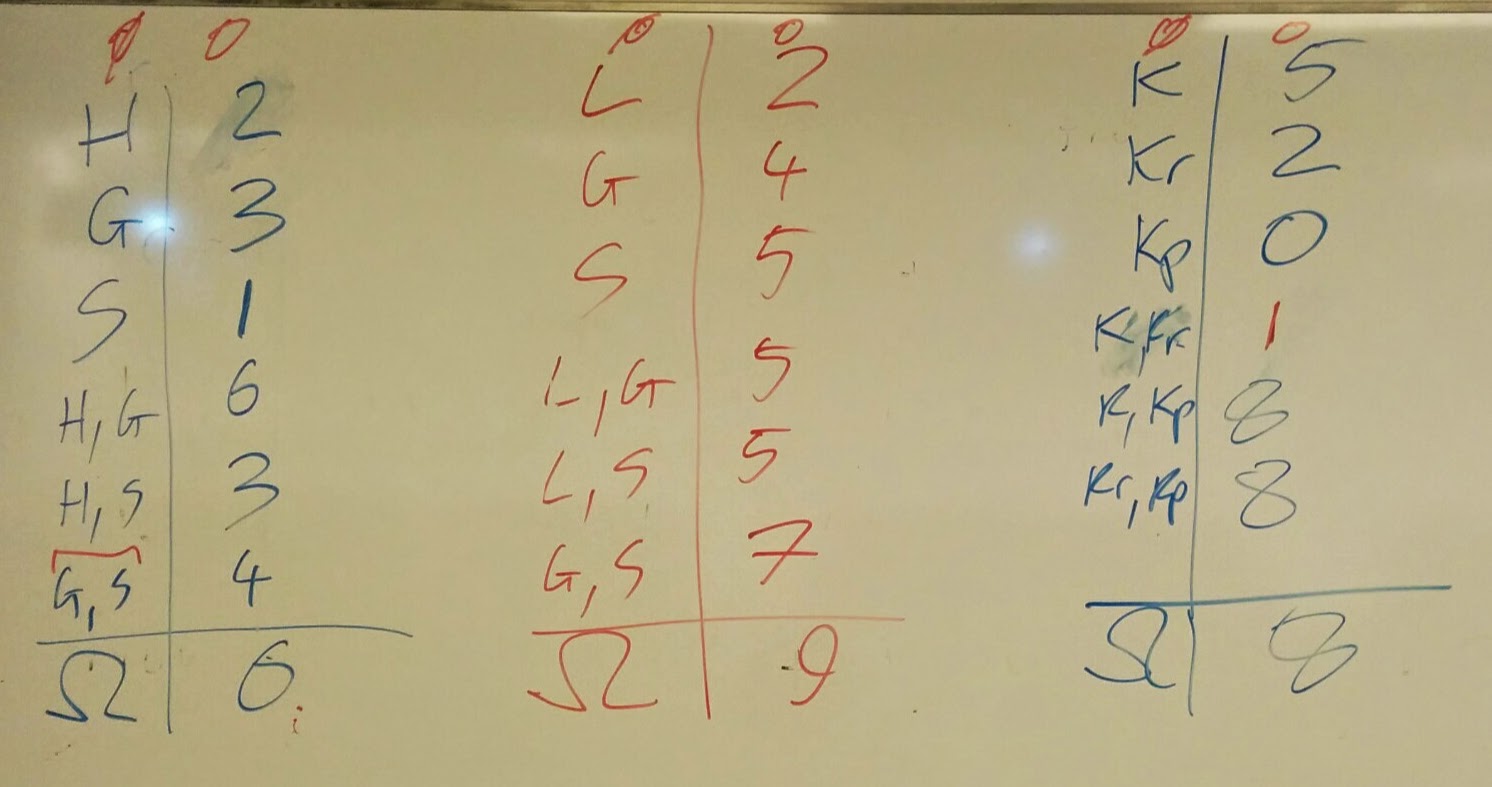 ∅ 0
H 2
G 3
S 1
H, G 6
H, S 3
G, S 4
Ω 6
∅ 0
L 2
G 4
S 5
L, G 5
L, S 5
G, S 7
Ω 9
∅ 0
K 5
Kr 2
Kp 0
K, Kr 1
K, Kp 8
Kr, Kp 8
Ω 8